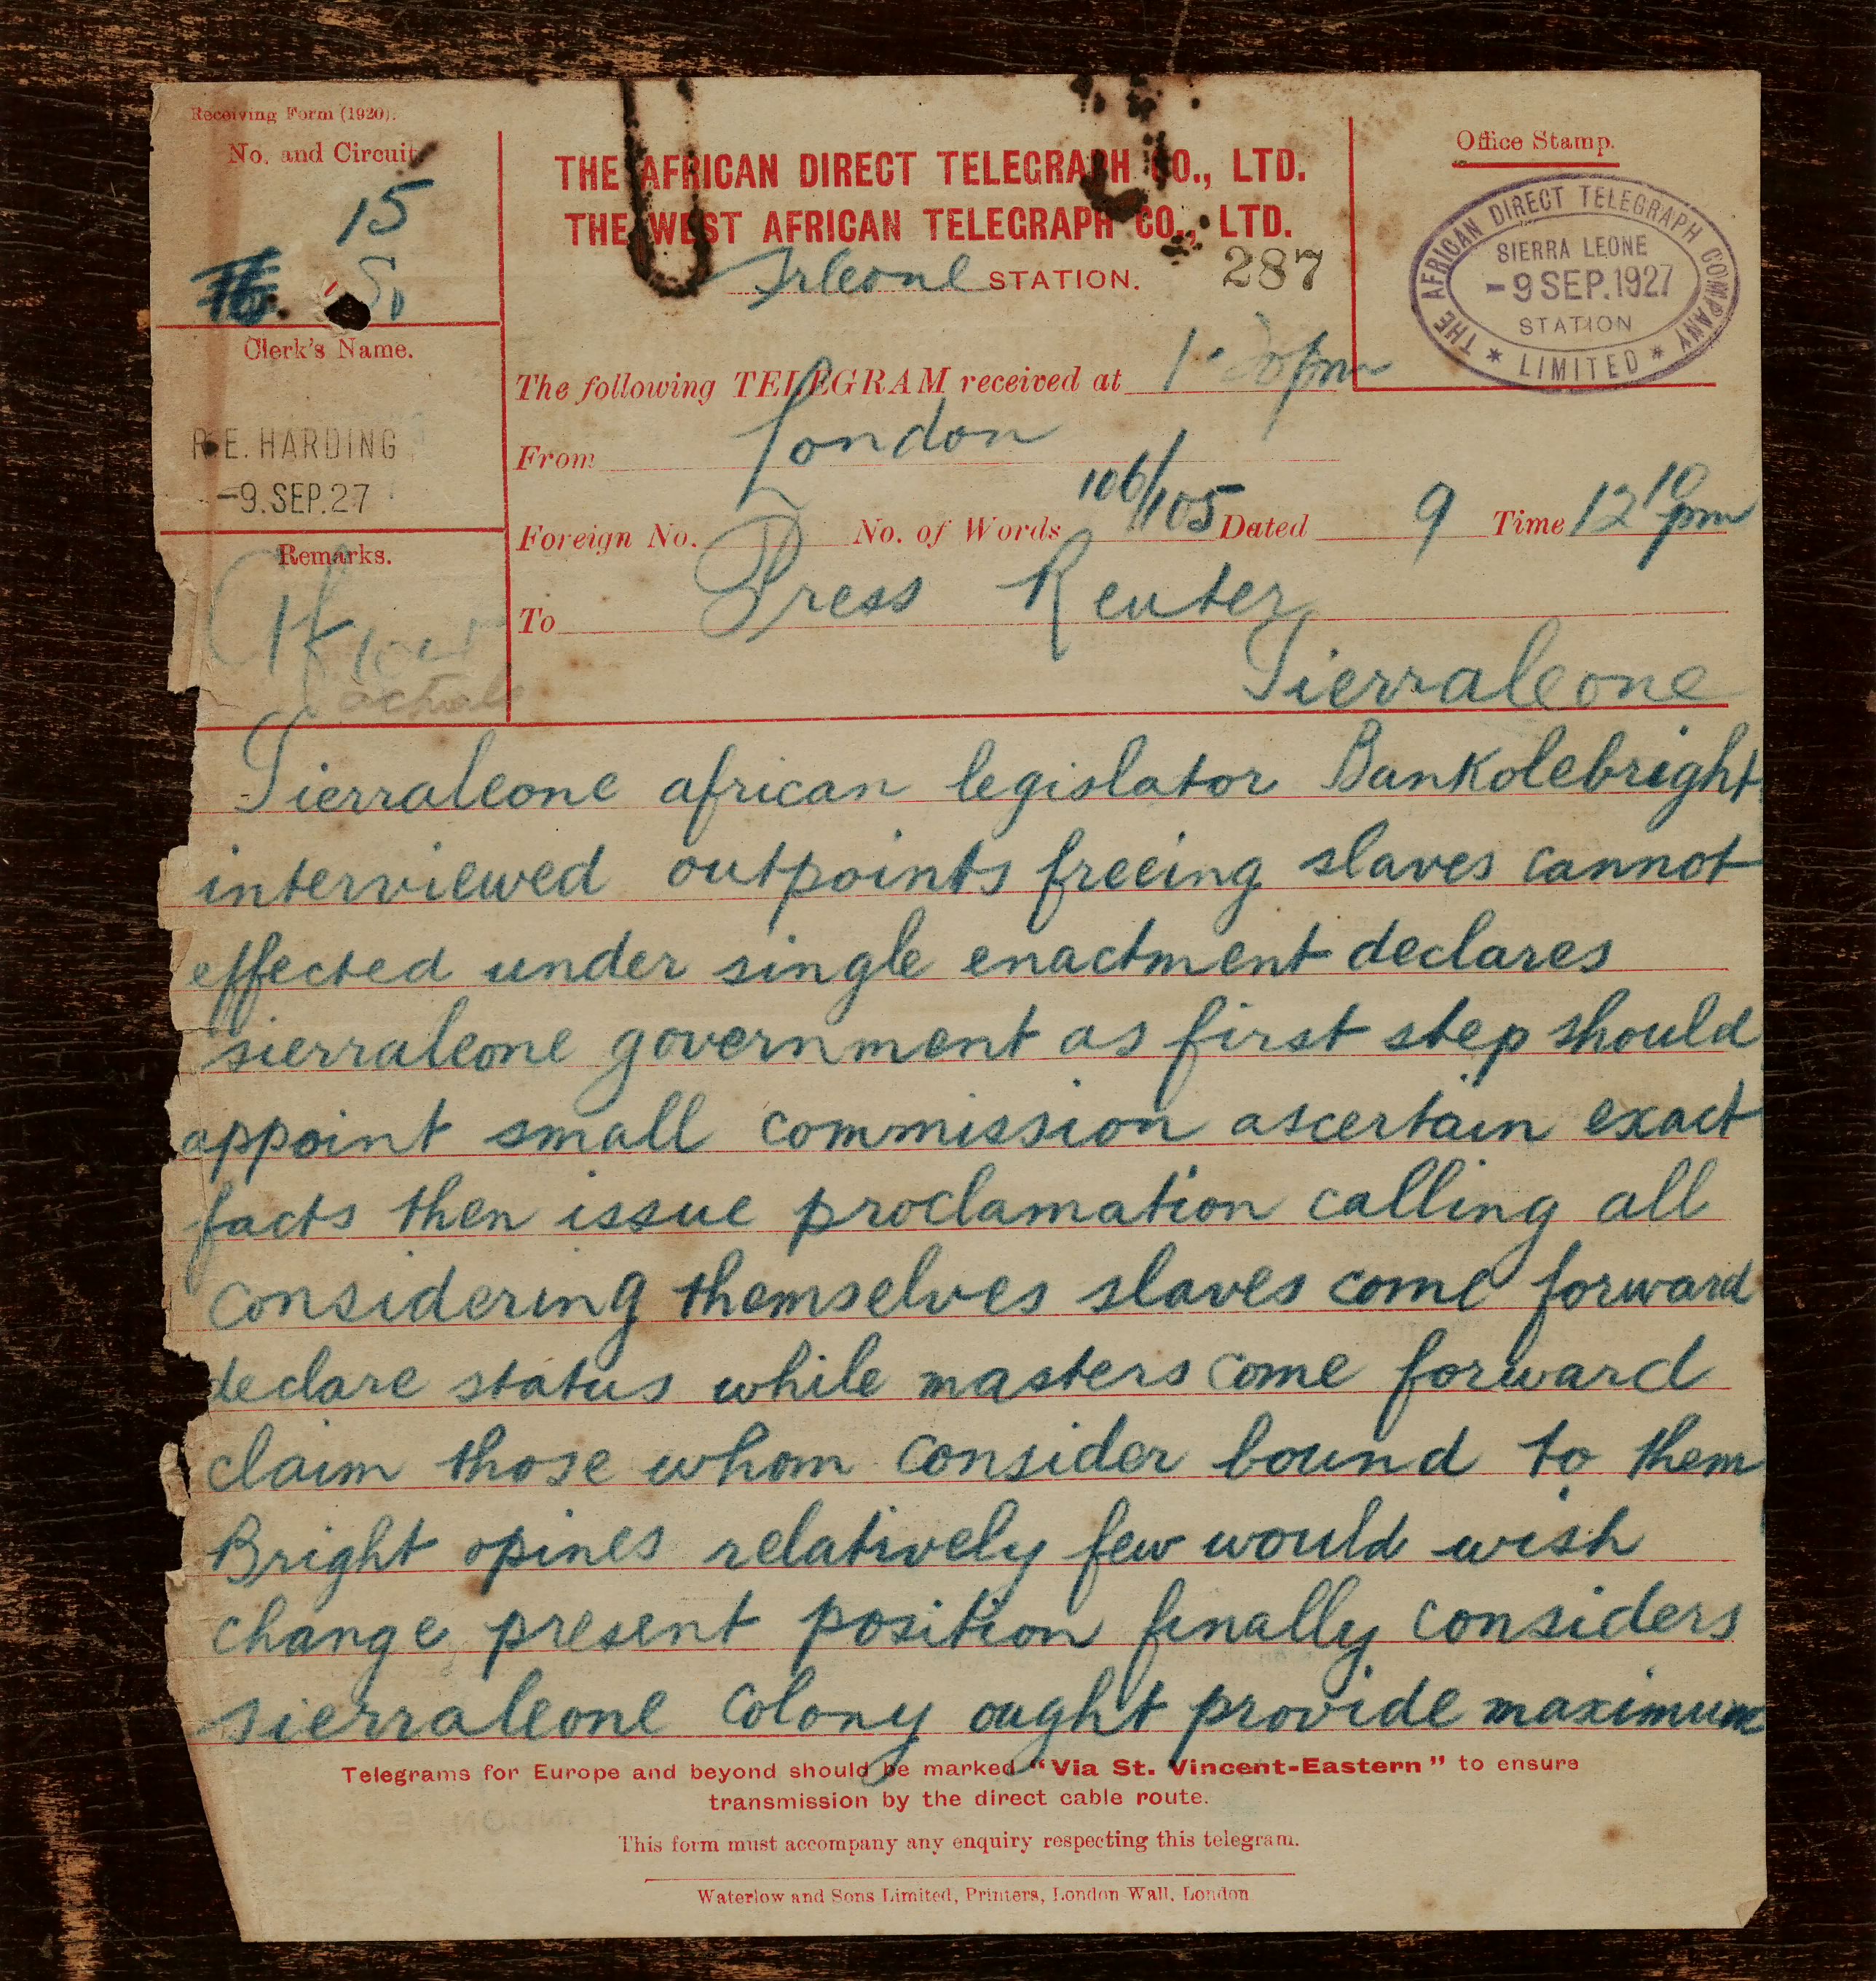 Receiving Form (1920).
No. and Circuit
15
THE AFRICAN DIRECT TELEGRAPH CO., LTD.
THE WEST AFRICAN TELEGRAPH CO., LTD.
Srleone STATION. 287
Office Stamp.
THE AFRICAN DIRECT TELEGRAPH COMPANY
SIERRA LEONE
-9 SEP.1927
STATION
* LIMITED *
Clerk's Name.
R.E. HARDING
-9.SEP.27
Remarks.
The following TELEGRAM received at pm
From London
Foreign No. No. of Words 106/105 Dated 9 Time 12 10 pm
To Press Reuter
Sierraleone
Sierraleone african legislator Bankolebright
interviewed outpoints freeing slaves cannot
effected under single enactment declares
sierraleone government as first step should
appoint small commission ascertain exact
facts then issue proclamation calling all
considering themselves slaves come forward
declare status while masters come forward
claim those whom consider bound to them
Bright opines relatively few would wish
change present position finally considers
sierraleone colony ought provide maximum
Telegrams for Europe and beyond should be marked "Via St. Vincent-Eastern" to ensure
transmission by the direct cable route.
This form must accompany any enquiry respecting this telegram.
Waterlow and Sons Limited, Printers, London Wall, London